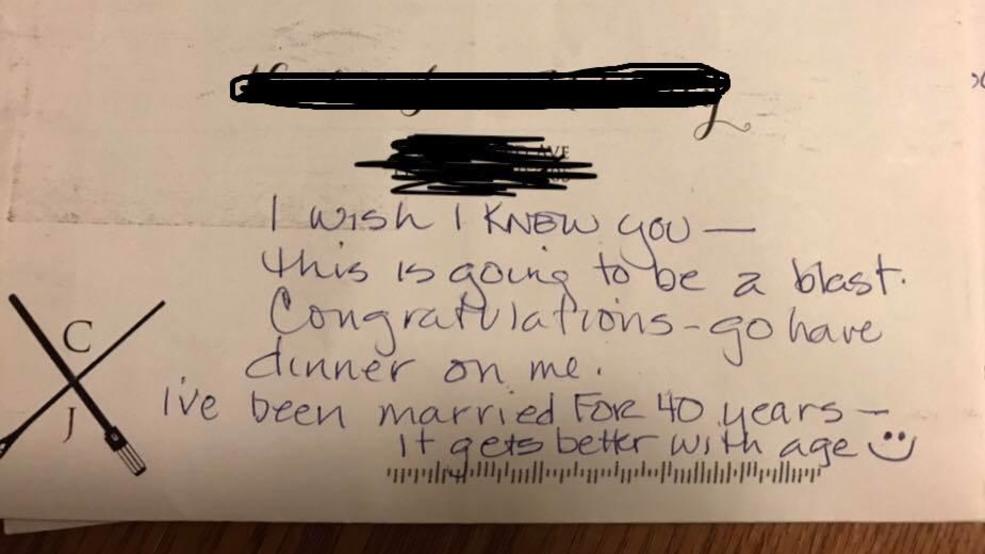 AVE
I WISH I KNEW YOU —
this is going to be a blast.
Congratulations - go have
dinner on me.
I've been married FOR 40 years —
It gets better with age
C
J